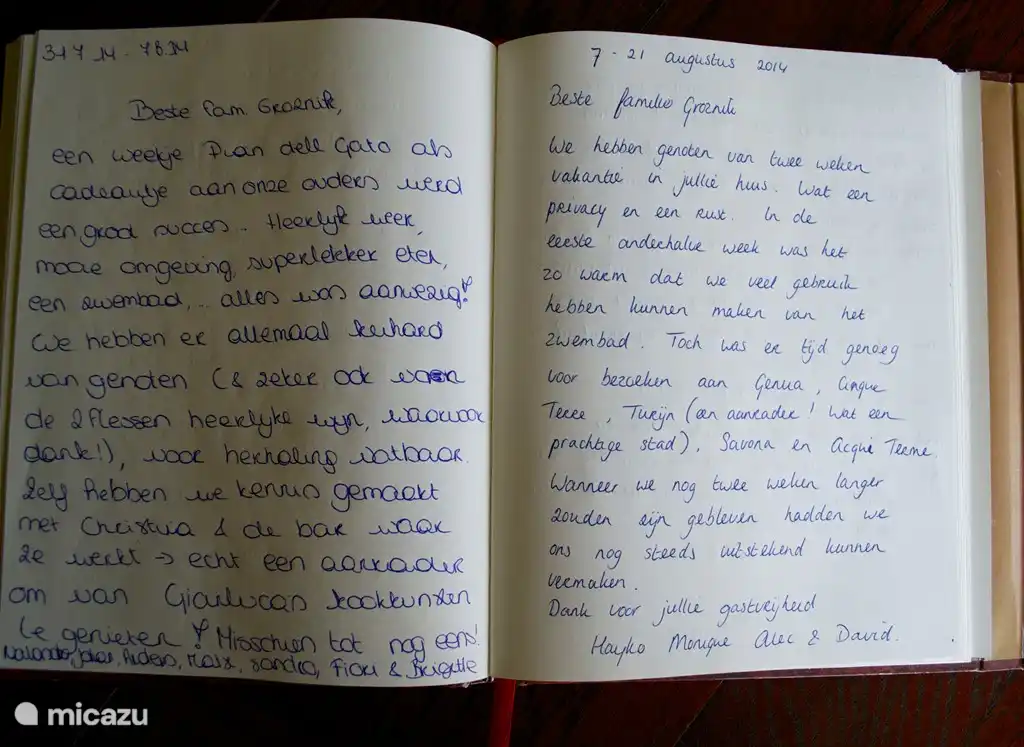 317 14 - 78 14
Beste fam. Groenik,
een weekje Pian dell Gato als
cadeautje aan onze ouders werd
een groot succes.. Heerlijk weer,
mooie omgeving, superlekker eten,
een zwembad,... alles was aanwezig!
We hebben er allemaal keihard
van genoten (& zeker ook van
de 2 flessen heerlijke wijn, waarvoor
dank!), voor herhaling vatbaar.
Zelf hebben we kennis gemaakt
met & de bar waar
ze werkt → echt een aanrader
om van Gianlucas kookkunsten
te genieten! Misschien tot nog eens!
Anders, Sandra, & Brigitte
7 - 21 augustus 2014
Beste familie Groenik
We hebben genoten van twee weken
vakantie in jullie huis. Wat een
privacy en een rust. In de
eerste anderhalve week was het
zo warm dat we veel gebruik
hebben kunnen maken van het
zwembad. Toch was er tijd genoeg
voor bezoeken aan Genua, Cinque
Terre, Turijn (een aanrader! Wat een
prachtige stad), Savona en Acqui Terme.
Wanneer we nog twee weken langer
zouden zijn gebleven hadden we
ons nog steeds uitstekend kunnen
vermaken.
Dank voor jullie gastvrijheid
Hayko Monique Alec & David.
micazu